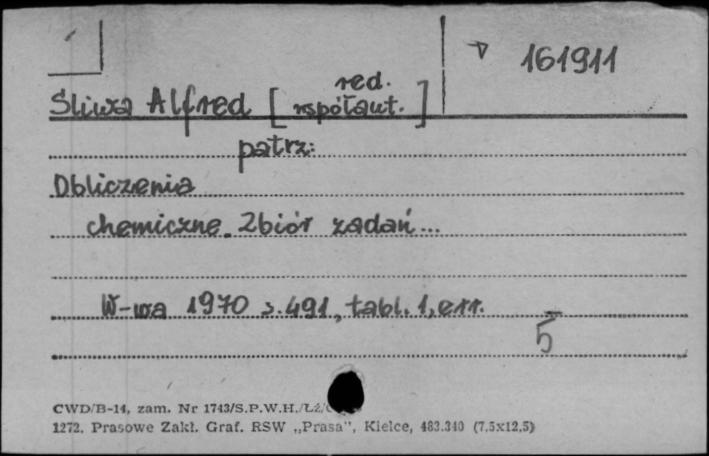 161911
Śliwa Alfred [red. współaut.]
patrz:
Obliczenia
chemiczne. Zbiór zadań...
W-wa 1970 s.491, tabl. 1, err.
5
CWD/B-14, zam. Nr 1743/S.P.W.H./Łż/
1272. Prasowe Zakł. Graf. RSW „Prasa", Kielce, 483.340 (7,5x12,5)